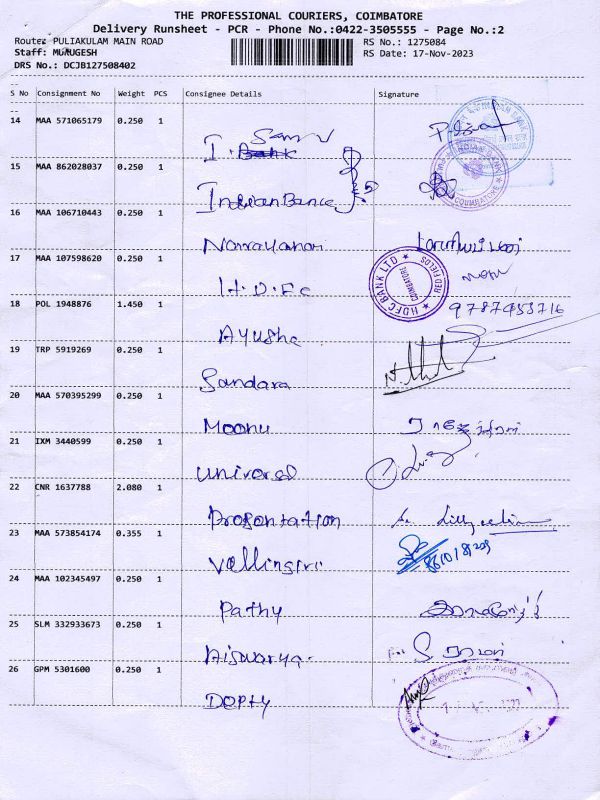 THE PROFESSIONAL COURIERS, COIMBATORE
Delivery Runsheet - PCR - Phone No.:0422-3505555 - Page No.:2
Route: PULIAKULAM MAIN ROAD
Staff: MURUGESH
DRS No.: DCJB127508402
RS No.: 1275084
RS Date: 17-Nov-2023
S No Consignment No Weight PCS Consignee Details Signature
14 MAA 571065179 0.250 1
I. Bank
15 MAA 862028037 0.250 1
Indian Bank
COIMBATORE
16 MAA 106710443 0.250 1
Narayanan
17 MAA 107598620 0.250 1
H.D.Fc
HDFC BANK LTD
COIMBATORE
RED FIELDS
18 POL 1948876 1.450 1
9787453716
Ayusha
19 TRP 5919269 0.250 1
Sandara
20 MAA 570395299 0.250 1
Moonu
21 IXM 3440599 0.250 1
Universal
22 CNR 1637788 2.080 1
Progontation
23 MAA 573854174 0.355 1
Vallingiri
24 MAA 102345497 0.250 1
Pathy
25 SLM 332933673 0.250 1
Aiswarya.
26 GPM 5301600 0.250 1
Depty